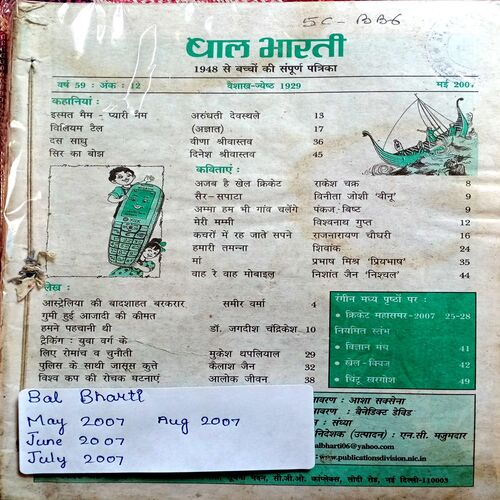 5C - BB6
बाल भारती
1948 से बच्चों की संपूर्ण पत्रिका
वर्ष 59 : अंक : 12 वैशाख-ज्येष्ठ 1929 मई 2007
कहानियां :
इस्मत मैम - प्यारी मैम अरुंधती देवस्थले 13
विलियम टैल (अज्ञात) 17
दस साधु वीणा श्रीवास्तव 36
सिर का बोझ दिनेश श्रीवास्तव 45
कविताएं :
अजब है खेल क्रिकेट राकेश चक्र 8
सैर-सपाटा विनीता जोशी 'वीनू' 9
अम्मा हम भी गांव चलेंगे पंकज बिष्ट 9
मेरी मम्मी विश्वनाथ गुप्त 12
कचरों में रह जाते सपने राजनारायण चौधरी 16
हमारी तमन्ना शिवांक 24
मां प्रभाष मिश्र 'प्रियभाष' 35
वाह रे वाह मोबाइल निशांत जैन 'निश्चल' 44
लेख :
आस्ट्रेलिया की बादशाहत बरकरार समीर वर्मा 4
गुमी हुई आजादी की कीमत
हमने पहचानी थी डॉ. जगदीश चंद्रिकेश 10
ट्रैकिंग : युवा वर्ग के
लिए रोमांच व चुनौती मुकेश थपलियाल 29
पुलिस के साथी जासूस कुत्ते कैलाश जैन 32
विश्व कप की रोचक घटनाएं आलोक जीवन 38
रंगीन मध्य पृष्ठों पर :
• क्रिकेट महासमर-2007 25-28
नियमित स्तंभ
• विज्ञान मंच 41
• खेल-क्विज 42
• चिंटू खरगोश 49
Bal Bharti
May 2007 Aug 2007
June 2007
July 2007
आवरण : आशा सक्सेना
: बैनेडिक्ट डेविड
: संध्या
निदेशक (उत्पादन) : एन.सी. मजुमदार
albharti06@yahoo.com
www.publicationsdivision.nic.in
सूचना भवन, सी.जी.ओ. काम्प्लेक्स, लोदी रोड, नई दिल्ली-110003